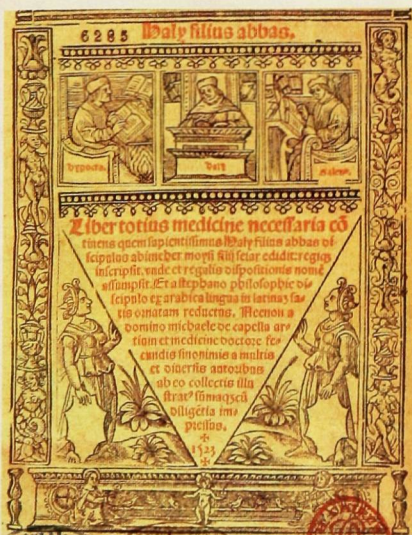 6285 Haly filius abbas.
ypocra. Haly Galen.
Liber totius medicine necessaria cō
tinens quem sapientissimus Haly filius abbas di
scipulus abimeher moysi filij seiar edidit: regiq;
inscripsit. vnde et regalis dispositionis nomē
assumpsit. Et a stephano philosophie di-
scipulo ex arabica lingua in latinaz sa-
tis ornatam reductus. Necnon a
domino michaele de capella ar-
tium et medicine doctore fe-
cundis sinonimis a multis
et diuersis autoribus
ab eo collectis illu
strat⁹ summaqzcū
diligētia im-
pressus.
1523